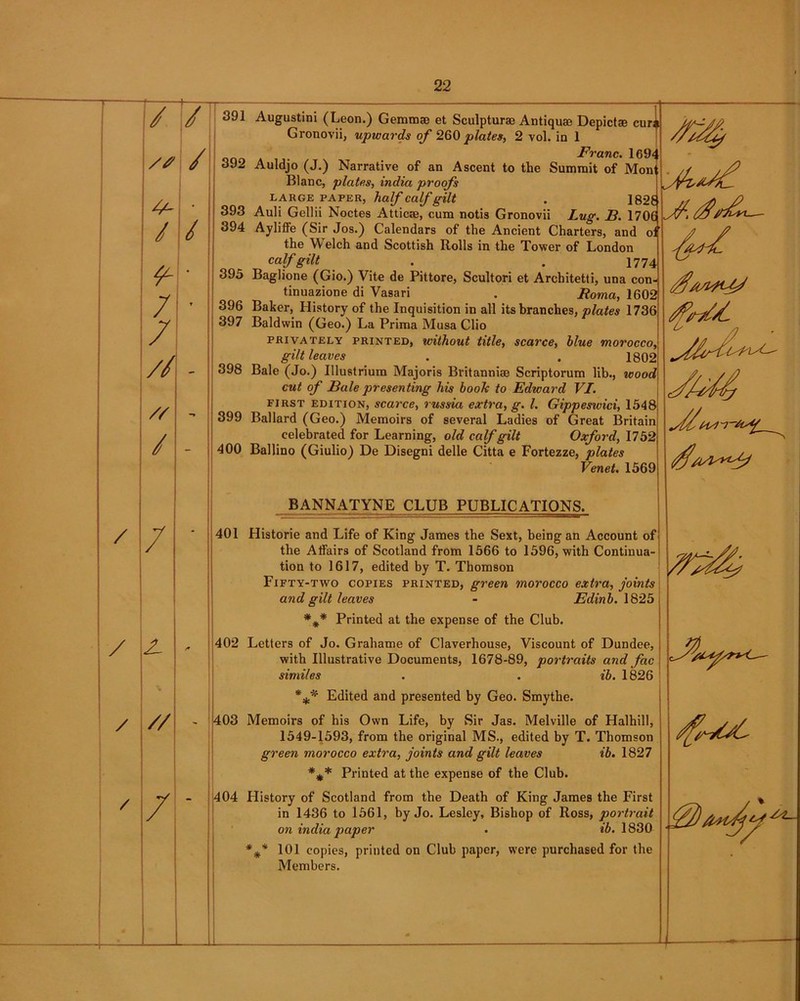 22
391 Augustini (Leon.) Gemmæ et Sculpturæ Antiquæ Depictæ cura
Gronovii, upwards of 260 plates, 2 vol. in 1
Franc. 1694
392 Auldjo (J.) Narrative of an Ascent to the Summit of Mont
Blanc, plates, india proofs
LARGE PAPER, half calf gilt . 1828
393 Auli Gellii Noctes Atticæ, cum notis Gronovii Lug. B. 1706
394 Ayliffe (Sir Jos.) Calendars of the Ancient Charters, and of
the Welch and Scottish Rolls in the Tower of London
calf gilt . . 1774
395 Baglione (Gio.) Vite de Pittore, Scultori et Architetti, una con-
tinuazione di Vasari . Roma, 1602
396 Baker, History of the Inquisition in all its branches, plates 1736
397 Baldwin (Geo.) La Prima Musa Clio
PRIVATELY PRINTED, without title, scarce, blue morocco,
gilt leaves . . 1802
398 Bale (Jo.) Illustrium Majoris Britanniæ Scriptorum lib., wood
cut of Bale presenting his book to Edward VI.
FIRST EDITION, scarce, russia extra, g. l. Gippeswici, 1548
399 Ballard (Geo.) Memoirs of several Ladies of Great Britain
celebrated for Learning, old calf gilt Oxford, 1752
400 Ballino (Giulio) De Disegni delle Citta e Fortezze, plates
Venet. 1569
BANNATYNE CLUB PUBLICATIONS.
401 Historie and Life of King James the Sext, being an Account of
the Affairs of Scotland from 1566 to 1596, with Continua-
tion to 1617, edited by T. Thomson
FIFTY-TWO COPIES PRINTED, green morocco extra, joints
and gilt leaves - Edinb. 1825
*** Printed at the expense of the Club.
402 Letters of Jo. Grahame of Claverhouse, Viscount of Dundee,
with Illustrative Documents, 1678-89, portraits and fac
similes . . ib. 1826
*** Edited and presented by Geo. Smythe.
403 Memoirs of his Own Life, by Sir Jas. Melville of Halhill,
1549-1593, from the original MS., edited by T. Thomson
green morocco extra, joints and gilt leaves ib. 1827
*** Printed at the expense of the Club.
404 History of Scotland from the Death of King James the First
in 1436 to 1561, by Jo. Lesley, Bishop of Ross, portrait
on india paper . ib. 1830
*** 101 copies, printed on Club paper, were purchased for the
Members.